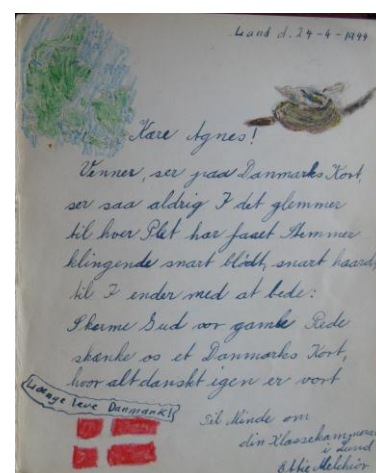 Lund d. 24-4-1944
Kære Agnes!
Venner, ser paa Danmarks Kort,
ser saa aldrig I det glemmer
til hver Plet har faaet Stemmer
klingende snart blødt, snart haardt,
til I ender med at bede:
Skærme Gud vor gamle Rede
skænke os et Danmarks Kort,
hvor alt danskt igen er vort
Længe leve Danmark!
Til Minde om
din Klassekammerat
i Lund
Melchior